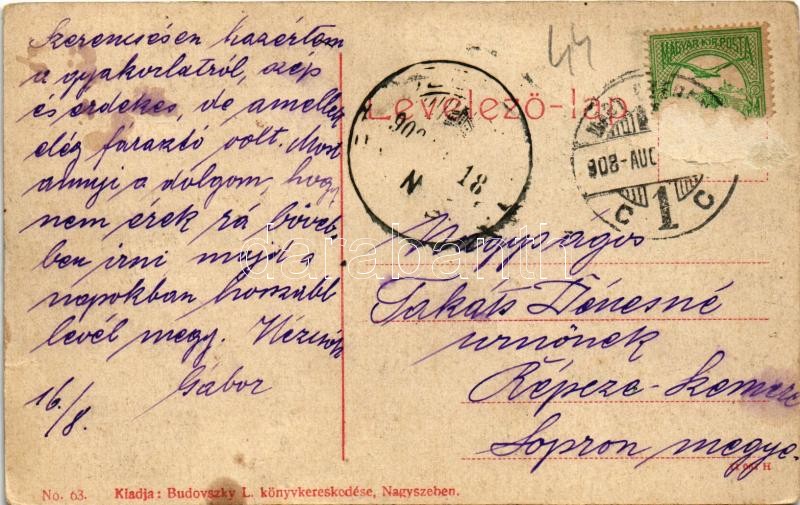 Szerencsésen hazaértem
a gyakorlatról, szép
és érdekes, de amellett
elég fárasztó volt. Most
annyi a dolgom, hogy
nem érek rá bőveb-
ben irni majd a
napokban hosszabb
levél megy. Kézcsók
Gábor
16./8.
44
MAGYAR KIR. POSTA
Levelező-lap
908-AUG
C 1 C
18
N
Nagyságos
Takáts Dénesné
urnőnek
Répcze-Szemere
Sopron megye.
darabanth
No. 63. Kiadja: Budovszky L. könyvkereskedése, Nagyszeben.